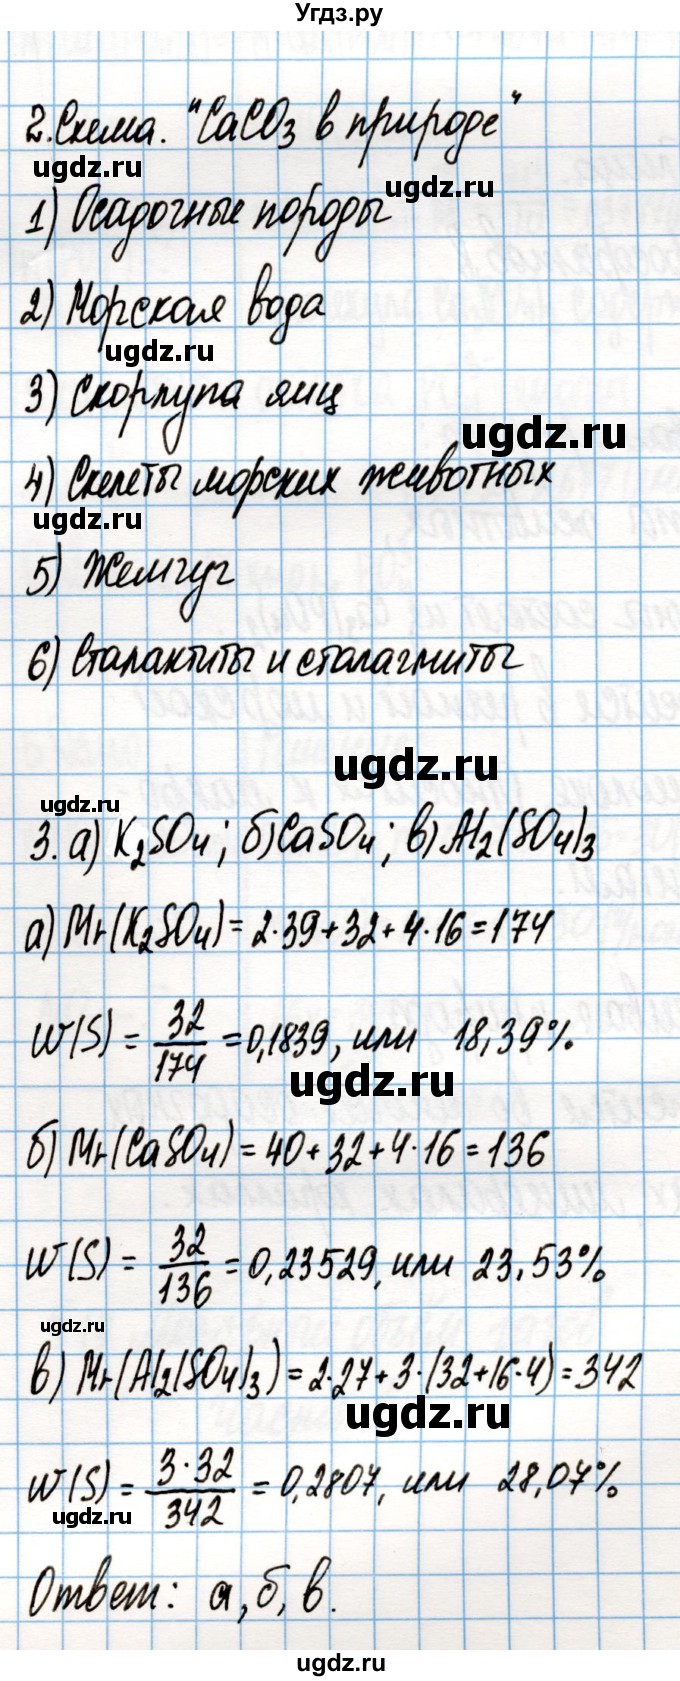 Угдз.ру
2. Схема. "CaCO₃ в природе"
ugdz.ru
ugdz.ru
1) Осадочные породы
2) Морская вода
ugdz.ru
3) Скорлупа яиц
ugdz.ru
4) Скелеты морских животных
ugdz.ru
5) Жемчуг
6) Сталактиты и сталагмиты
ugdz.ru
ugdz.ru
3. а) K₂SO₄; б) CaSO₄; в) Al₂(SO₄)₃
а) Mr(K₂SO₄) = 2·39+32+4·16=174
W(S) = 32/174 = 0,1839, или 18,39%
ugdz.ru
б) Mr(CaSO₄) = 40+32+4·16=136
W(S) = 32/136 = 0,23529, или 23,53%
ugdz.ru
в) Mr(Al₂(SO₄)₃) = 2·27+3·(32+16·4)=342
ugdz.ru
W(S) = 3·32/342 = 0,2807, или 28,07%
ugdz.ru
Ответ: а, б, в.
ugdz.ru